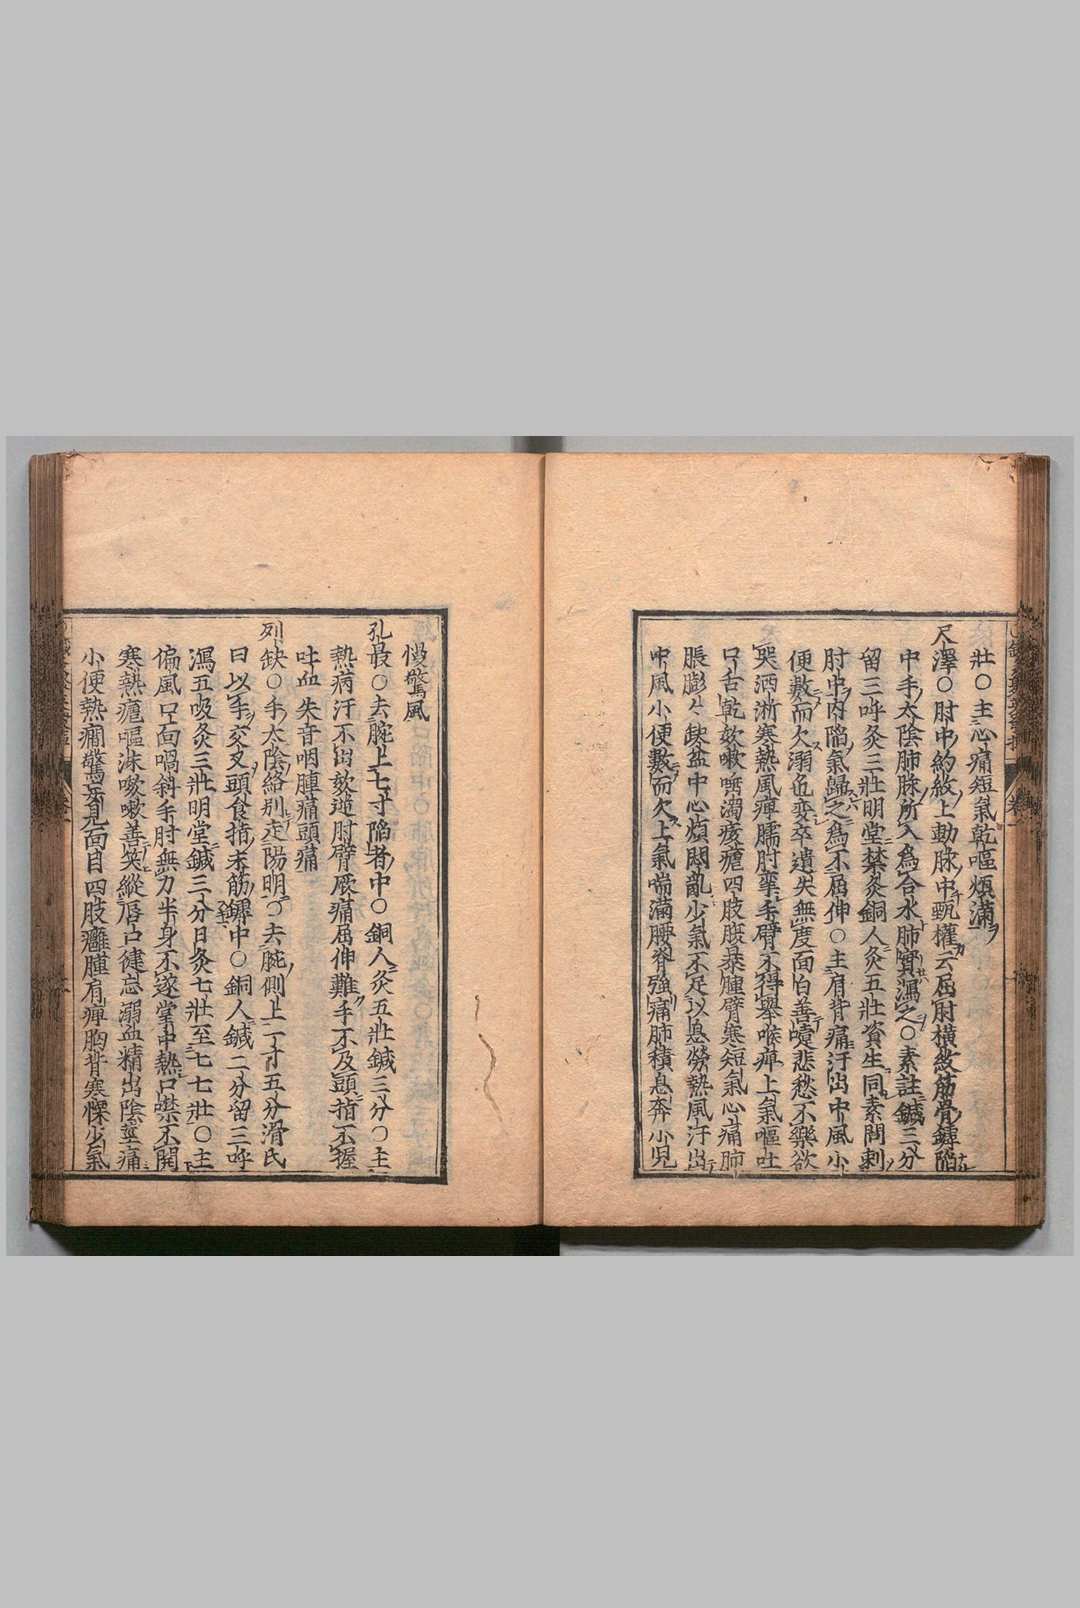 壯〇主心痛短氣乾嘔煩滿
尺澤〇肘中約紋上動脉中甄權云屈肘橫紋筋骨鏬陷
中手太陰肺脉所入為合水肺實瀉之〇素註鍼三分
留三呼灸三壯明堂禁灸銅人灸五壯資生同素問刺
肘中內陷氣歸之為不屈伸〇主肩背痛汗出中風小
便數而欠溺色變卒遺失無度面白善嚏悲愁不樂欲
哭洒淅寒熱風痺臑肘攣手臂不得舉喉痺上氣嘔吐
口舌乾欬嗽唾濁痎瘧四肢腹暴腫臂寒短氣心痛肺
脹膨々缺盆中心煩悶亂少氣不足以息勞熱風汗出
中風小便數而欠上氣喘滿腰脊強痛肺積息奔小児
慢驚風
孔最〇去腕上七寸陷者中〇銅人灸五壯鍼三分〇主
熱病汗不出欬逆肘臂厥痛屈伸難手不及頭指不握
吐血失音咽腫痛頭痛
列缺〇手太陰絡別走陽明〇去腕側上一寸五分滑氏
曰以手交叉頭食指末筋鏬中〇銅人鍼二分留三呼
瀉五吸灸三壯明堂鍼三分日灸七壯至七七壯〇主
偏風口面喎斜手肘無力半身不遂掌中熱口噤不開
寒熱瘧嘔沫咳嗽善笑縱唇口健忘溺血精出陰莖痛
小便熱癇驚妄見面目四肢癰腫肩痺胸背寒慄少氣